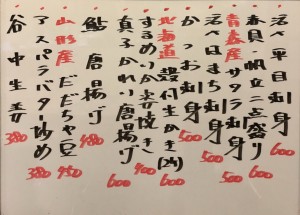 活〆平目刺身 600
春貝・帆立二点盛り 600
青森産サクラ刺身 500
活〆はまち刺身 500
かつお刺身 500
北海道殻付生かき(2ヶ) 600
するめいか姿焼き 400
真子かれい唐揚げ 600
鮎唐揚げ 480
山形産だだちゃ豆 450
アスパラバター炒め 380
谷中生姜 380